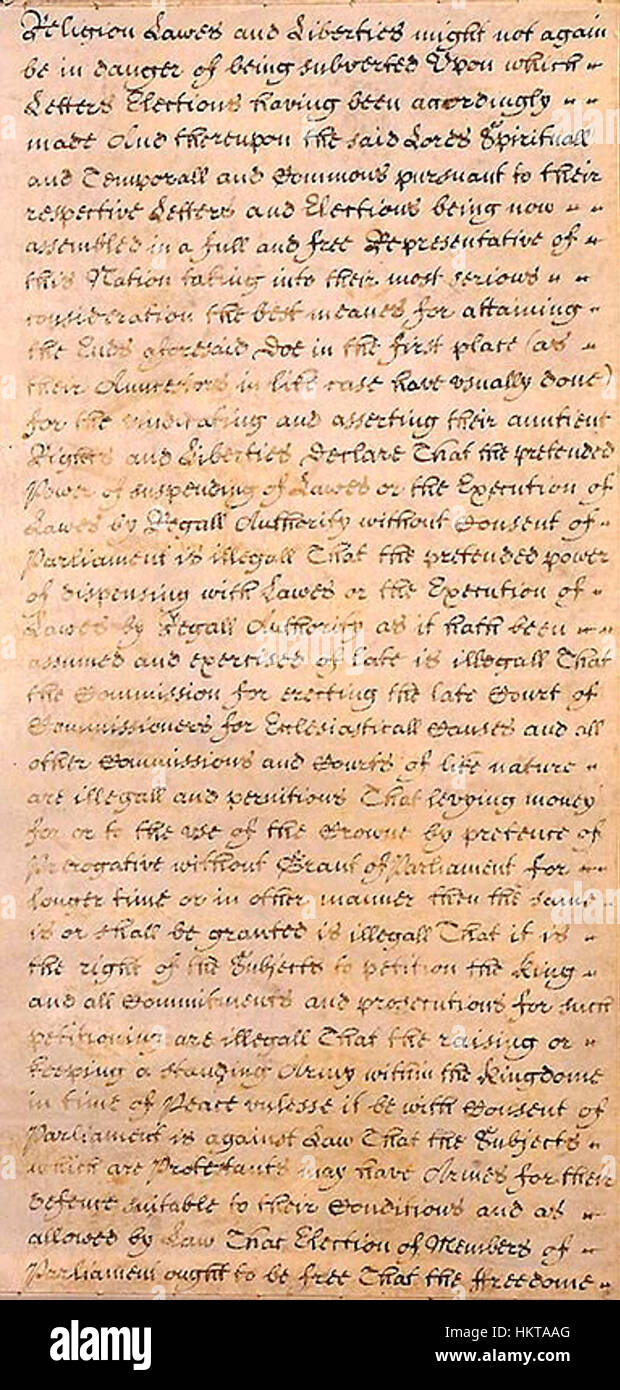 Religion Lawes and Liberties might not again
be in danger of being subverted Upon which
Letters Elections having been accordingly
made And thereupon the said Lords Spirituall
and Temporall and Commons pursuant to their
respective Letters and Elections being now
assembled in a full and free Representative of
this Nation taking into their most serious
consideration the best meanes for attaining
the Ends aforesaid Doe in the first place (as
their Auncestors in like case have usually done)
for the vindicating and asserting their auntient
Rights and Liberties Declare That the pretended
Power of suspending of Lawes or the Execution of
Lawes by Regall Authority without Consent of
Parliament is illegall That the pretended power
of dispensing with Lawes or the Execution of
Lawes by Regall Authority as it hath been
assumed and exercised of late is illegall That
the Commission for erecting the late Court of
Commissioners for Ecclesiasticall Causes and all
other Commissions and Courts of like nature
are illegall and pernitious That levying money
for or to the use of the Crowne by pretence of
Prerogative without Grant of Parliament for
longer time or in other manner then the same
is or shall be granted is illegall That it is
the right of the Subjects to petition the King
and all Commitments and prosecutions for such
petitioning are illegall That the raising or
keeping a standing Army within the Kingdome
in time of Peace unlesse it be with Consent of
Parliament is against Law That the Subjects
which are Protestants may have Armes for their
defence suitable to their Conditions and as
allowed by Law That Election of Members of
Parliament ought to be free That the ffreedome
alamy
Image ID: HKTAAG
www.alamy.com